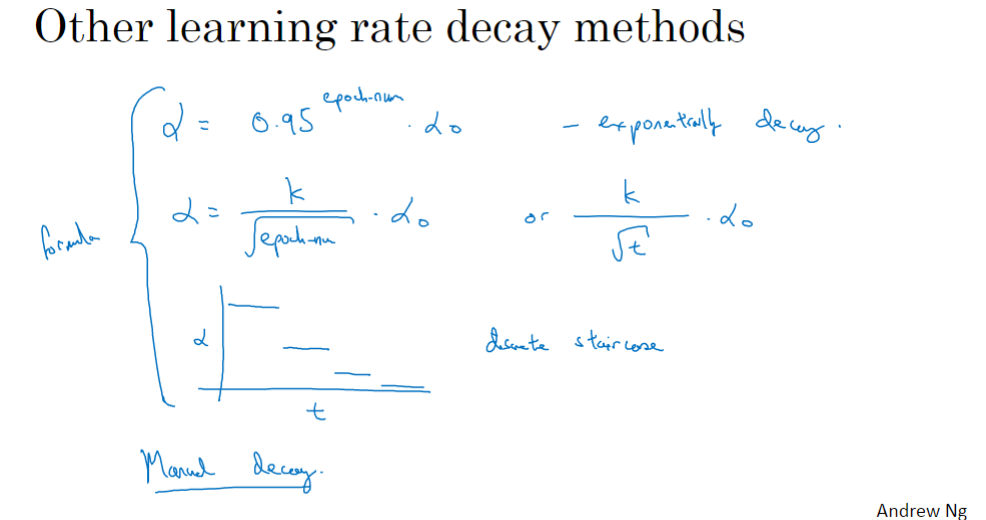 Other learning rate decay methods
α = 0.95^epoch-num · α₀ - exponentially decay.
α = k/√epoch-num · α₀ or k/√t · α₀
formula
α
discrete staircase
t
Manual decay.
Andrew Ng